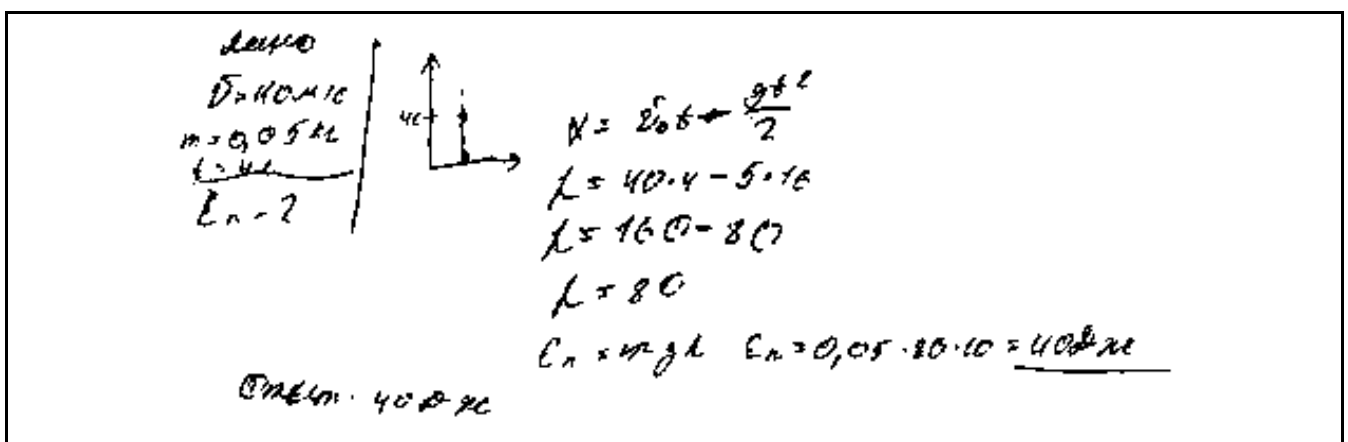 Дано
υ = 40 м/с
m = 0,05 кг
t = 4с
Eп - ?
4с
x = υ₀t - gt²/2
h = 40·4 - 5·16
h = 160 - 80
h = 80
Eп = mgh Eп = 0,05·80·10 = 40Дж
Ответ. 40Дж